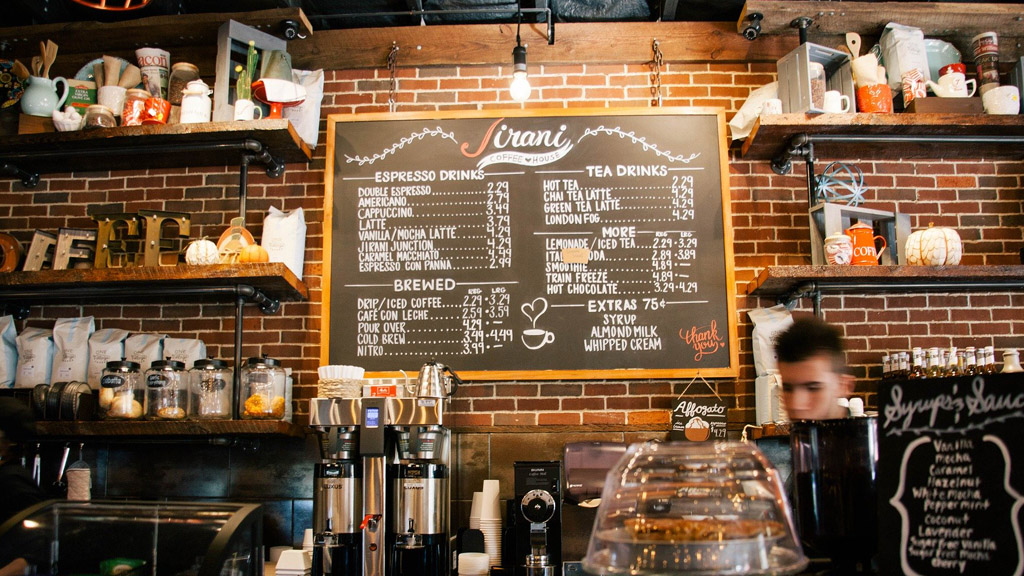 Jirani
COFFEE HOUSE
ESPRESSO DRINKS
DOUBLE ESPRESSO 2.29
AMERICANO
CAPPUCCINO
LATTE 3.79
VANILLA/MOCHA LATTE
JIRANI JUNCTION 4.29
CARAMEL MACCHIATO 4.29
ESPRESSO CON PANNA 2.99
BREWED
REG LRG
DRIP/ICED COFFEE 2.29 3.29
CAFÉ CON LECHE 2.59 3.59
POUR OVER 4.29 -
COLD BREW 3.99 4.99
NITRO 3.99 -
TEA DRINKS
HOT TEA 2.29
CHAI TEA LATTE 4.29
GREEN TEA LATTE 4.29
LONDON FOG 4.29
MORE
LEMONADE/ICED TEA 2.89 3.29
2.89 3.89
SMOOTHIE 4.89 -
TRAIN FREEZE 4.89 -
HOT CHOCOLATE 3.29 4.29
EXTRAS 75¢
SYRUP
ALMOND MILK
WHIPPED CREAM
thank you
Affogato
$4.29
Syrups & Sauc
Vanilla
Mocha
Caramel
Hazelnut
White Mocha
Peppermint
Coconut
Lavender
Sugar Free Vanilla
Sugar Free Mocha
Cherry